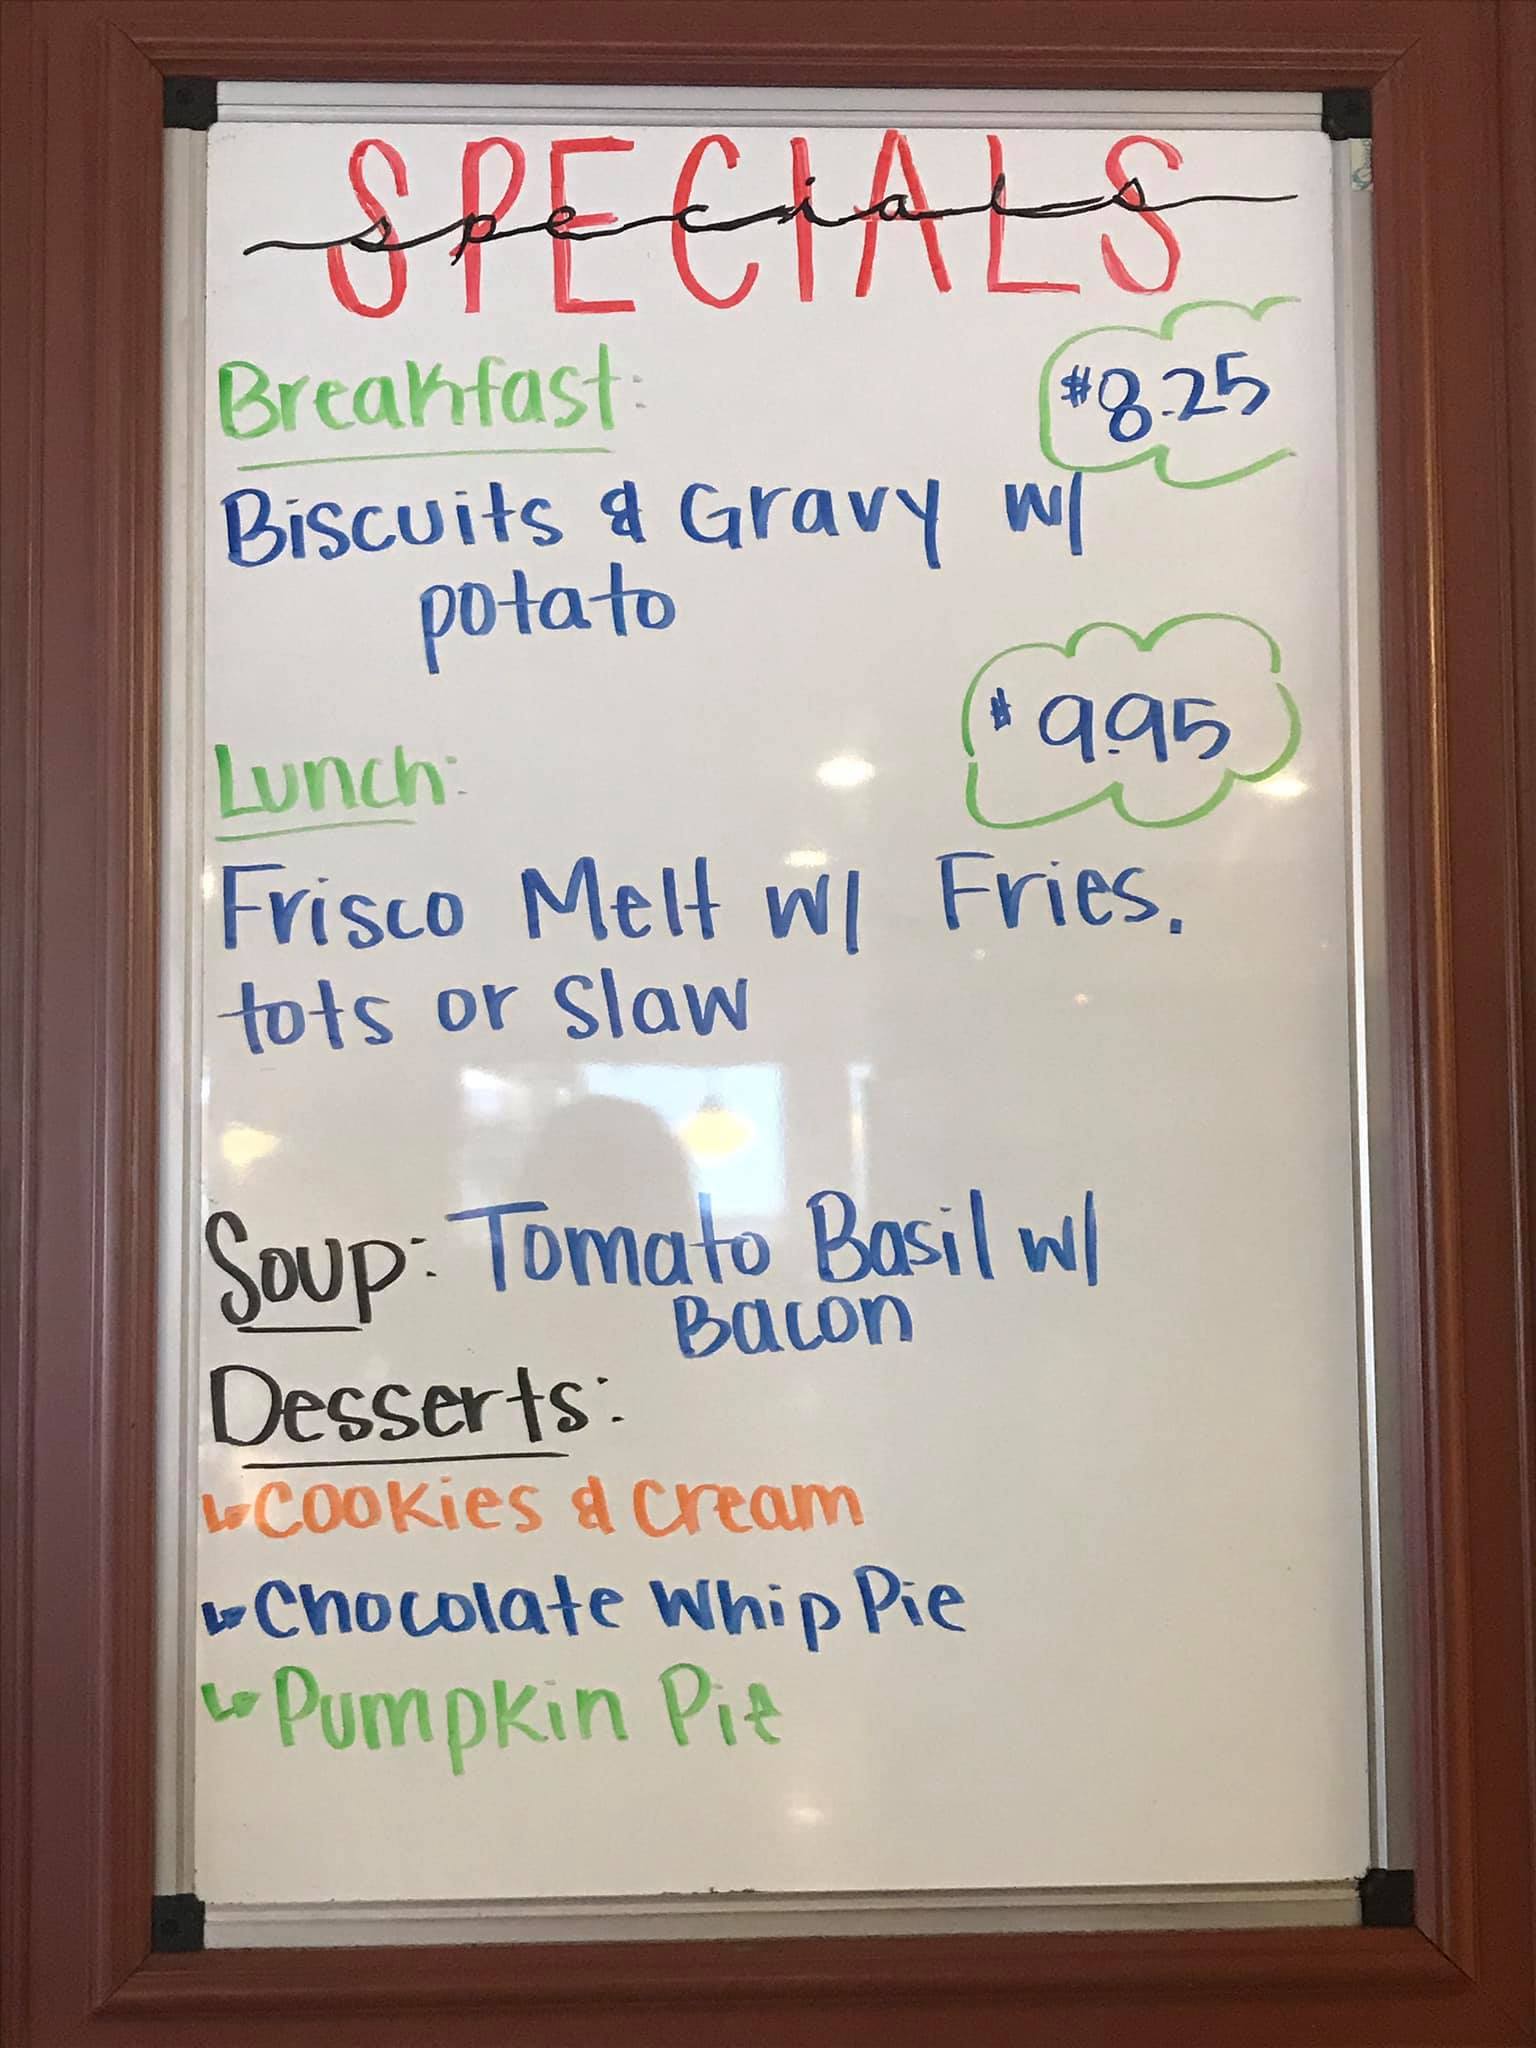 SPECIALS
specials
Breakfast:
$8.25
Biscuits & Gravy w/
potato
$9.95
Lunch:
Frisco Melt w/ Fries.
tots or slaw
Soup: Tomato Basil w/
Bacon
Desserts:
↳Cookies & Cream
↳Chocolate Whip Pie
↳Pumpkin Pie